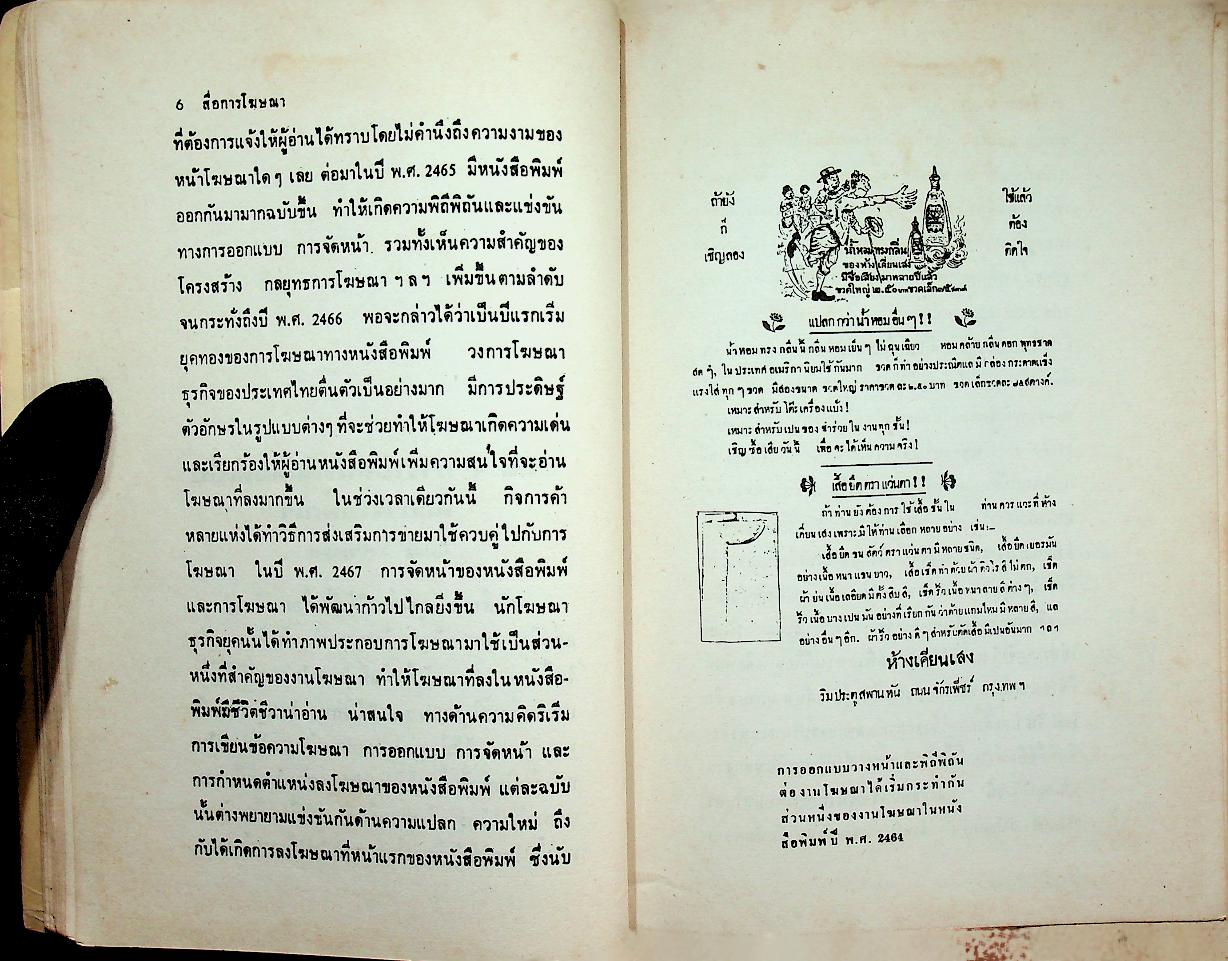 6 สื่อการโฆษณา
ที่ต้องการแจ้งให้ผู้อ่านได้ทราบโดยไม่คำนึงถึงความงามของ
หน้าโฆษณาใดๆ เลย ต่อมาในปี พ.ศ. 2465 มีหนังสือพิมพ์
ออกกันมามากฉบับขึ้น ทำให้เกิดความพิถีพิถันและแข่งขัน
ทางการออกแบบ การจัดหน้า รวมทั้งเห็นความสำคัญของ
โครงสร้าง กลยุทธการโฆษณา ฯลฯ เพิ่มขึ้นตามลำดับ
จนกระทั่งถึงปี พ.ศ. 2466 พอจะกล่าวได้ว่าเป็นปีแรกเริ่ม
ยุคทองของการโฆษณาทางหนังสือพิมพ์ วงการโฆษณา
ธุรกิจของประเทศไทยตื่นตัวเป็นอย่างมาก มีการประดิษฐ์
ตัวอักษรในรูปแบบต่างๆ ที่จะช่วยทำให้โฆษณาเกิดความเด่น
และเรียกร้องให้ผู้อ่านหนังสือพิมพ์เพิ่มความสนใจที่จะอ่าน
โฆษณาที่ลงมากขึ้น ในช่วงเวลาเดียวกันนี้ กิจการค้า
หลายแห่งได้ทำวิธีการส่งเสริมการขายมาใช้ควบคู่ไปกับการ
โฆษณา ในปี พ.ศ. 2467 การจัดหน้าของหนังสือพิมพ์
และการโฆษณา ได้พัฒนาก้าวไปไกลยิ่งขึ้น นักโฆษณา
ธุรกิจยุคนั้นได้ทำภาพประกอบการโฆษณามาใช้เป็นส่วน-
หนึ่งที่สำคัญของงานโฆษณา ทำให้โฆษณาที่ลงในหนังสือ-
พิมพ์มีชีวิตชีวาน่าอ่าน น่าสนใจ ทางด้านความคิดริเริ่ม
การเขียนข้อความโฆษณา การออกแบบ การจัดหน้า และ
การกำหนดตำแหน่งลงโฆษณาของหนังสือพิมพ์ แต่ละฉบับ
นั้นต่างพยายามแข่งขันกันด้านความแปลก ความใหม่ ถึง
กับได้เกิดการลงโฆษณาที่หน้าแรกของหนังสือพิมพ์ ซึ่งนับ
ถ้ายัง
ก็
เชิญลอง
ใช้แล้ว
ต้อง
ติดใจ
น้ำหอมทรงกลิ่น
ของห้างเคียนเสง
มีชื่อเสียงมาหลายปีแล้ว
ขวดใหญ่ ๒.๕๐
แปลกกว่าน้ำหอมอื่นๆ!!
น้ำหอมทรงกลิ่นนี้ กลิ่นหอมเย็นๆ ไม่ฉุนเฉียว หอมคล้ายกลิ่นดอกพุทธชาด
สดๆ, ในประเทศอเมริกานิยมใช้กันมาก ขวดก็ทำอย่างประณีตแลมีกล่องกระดาดแข็ง
แรงใส่ทุกๆ ขวด มีสองขนาด ขวดใหญ่ราคาขวดละ ๒.๕๐ บาท ขวดเล็กขวดละ ๗๕ สตางค์.
เหมาะสำหรับโต๊ะเครื่องแป้ง!
เหมาะสำหรับเปนของชำร่วยในงานทุกชั้น!
เชิญซื้อเสียวันนี้ เพื่อจะได้เห็นความจริง!
เสื้อยืดตราแว่นตา!!
ถ้าท่านยังต้องการใช้เสื้อชั้นใน ท่านควรแวะที่ห้าง
เคียนเสง เพราะมีให้ท่านเลือกหลายอย่าง เช่น:—
เสื้อยืดขนสัตว์ตราแว่นตามีหลายชนิด, เสื้อยืดเยอรมัน
อย่างเนื้อหนาแขนยาว, เสื้อเชิ้ตทำด้วยผ้า สีไม่ตก, เชิ้ต
ผ้าย่นเนื้อเลอียดมีตั้งสิบสี, เชิ้ตริ้วเนื้อหนาลายสีต่างๆ, เชิ้ต
ริ้วเนื้อบางเปนมันอย่างที่เรียกกันว่าด้ายแกมไหมมีหลายสี, แล
อย่างอื่นๆ อีก. ผ้าริ้วอย่างดีๆ สำหรับตัดเสื้อมีเปนอันมาก ฯลฯ
ห้างเคียนเสง
ริมประตูสพานหัน ถนนจักรเพ็ชร์ กรุงเทพฯ
การออกแบบวางหน้าและพิถีพิถัน
ต่องานโฆษณาได้เริ่มกระทำกัน
ส่วนหนึ่งของงานโฆษณาในหนัง
สือพิมพ์ปี พ.ศ. 2464